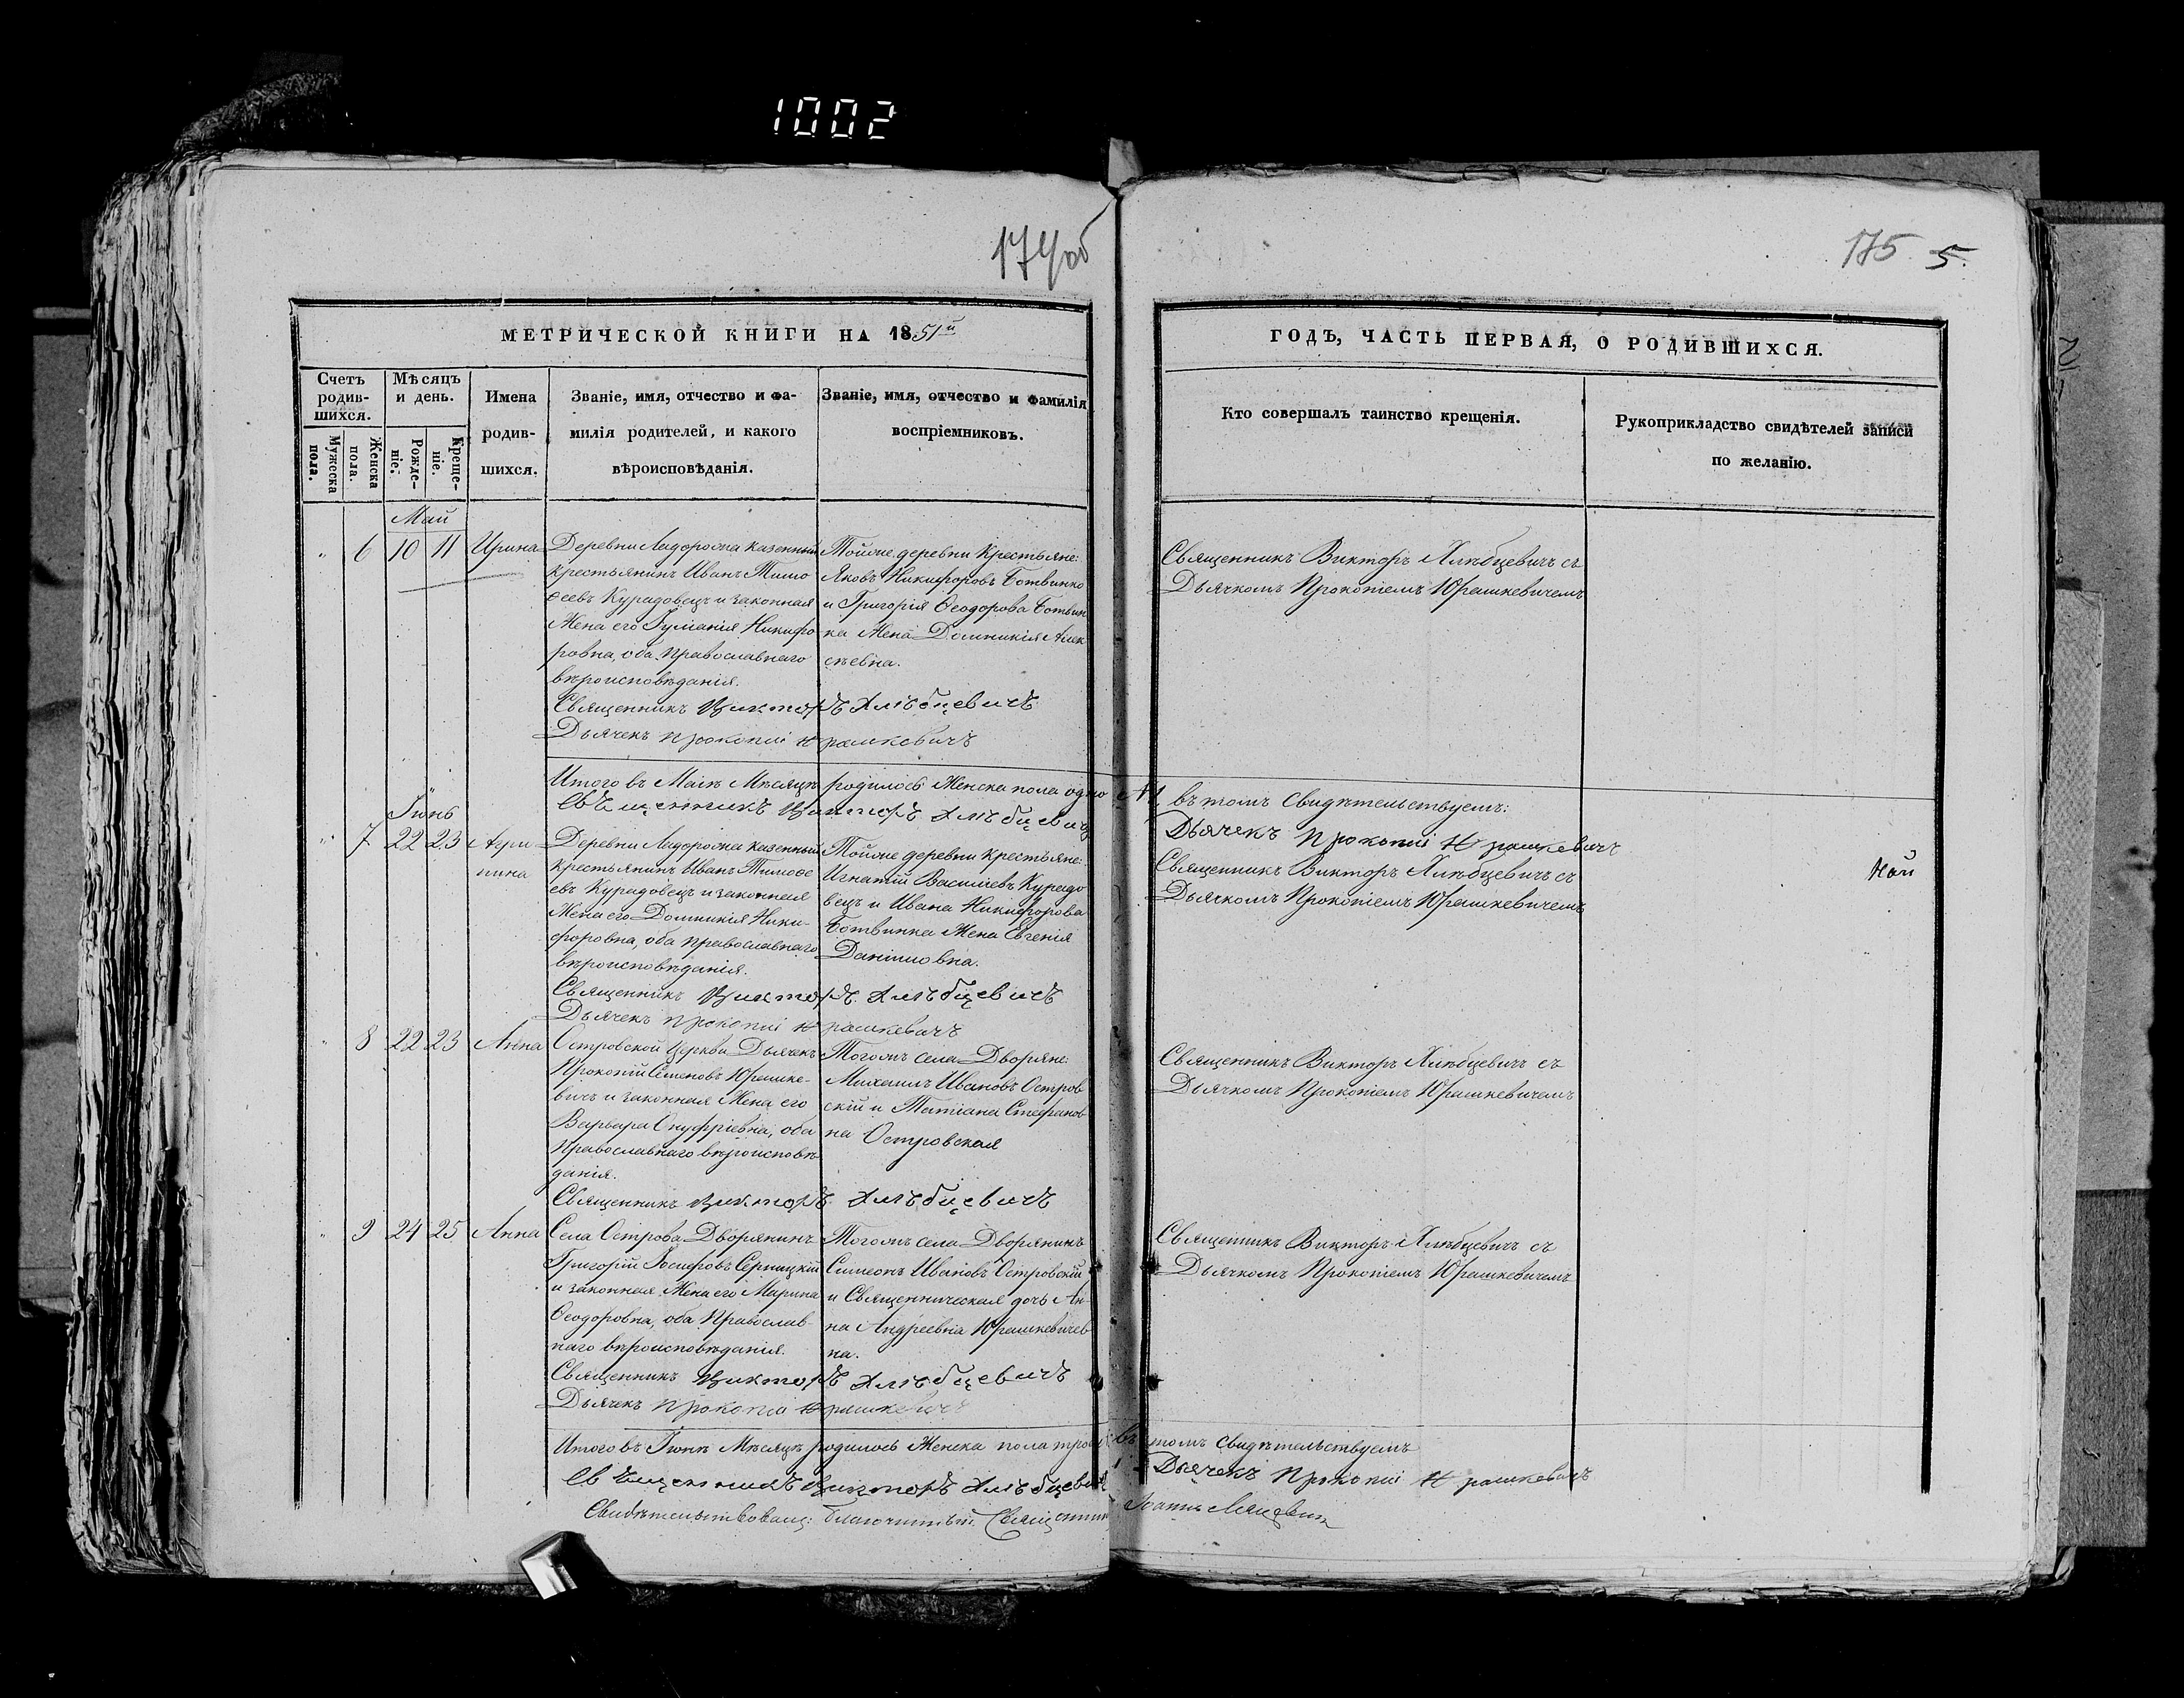 1002
174об
175 5.
МЕТРИЧЕСКОЙ КНИГИ НА 1851й
ГОДЪ, ЧАСТЬ ПЕРВАЯ, О РОДИВШИХСЯ.
Счетъ родив-шихся.
Мужеска пола.
Женска пола.
Мѣсяцъ и день.
Рожде-ніе.
Креще-ніе.
Имена
родив-
шихся.
Званіе, имя, отчество и фа-
милія родителей, и какого
вѣроисповѣданія.
Званіе, имя, отчество и фамилія
воспріемниковъ.
Кто совершалъ таинство крещенія.
Рукоприкладство свидѣтелей записи
по желанію.
Май
" 6 10 11 Ирина
Деревни казенный
крестьянинъ Иванъ Тимо
ѳеевъ Курадовецъ и законная
Жена его Никифо
ровна, оба Православнаго
вѣроисповѣданія.
Священникъ Викторъ Хлѣбцевичъ
Дьячекъ Прокопій Юрашкевичъ
Тойже деревни Крестьяне:
Яковъ Никифоровъ Ботвинко
и Григорія Ѳеодорова Ботвин
ка Жена Домникія Алек
сѣевна.
Священникъ Викторъ Хлѣбцевичъ съ
Дьячкомъ Прокопіемъ Юрашкевичемъ
Итого въ Маіѣ Мѣсяцѣ родилось Женска пола одно №1, въ томъ свидѣтельствуемъ:
Священникъ Викторъ Хлѣбцевичъ
Дьячекъ Прокопій Юрашкевичъ
Іюнь
" 7 22 23 Агри
пина
Деревни казенный
крестьянинъ Иванъ Тимоѳе
евъ Курадовецъ и законная
Жена его Домникія Ники-
форовна, оба Православнаго
вѣроисповѣданія.
Священникъ Викторъ Хлѣбцевичъ
Дьячекъ Прокопій Юрашкевичъ
Тойже деревни Крестьяне:
Игнатій Василіевъ Курадо
вецъ и Ивана Никифорова
Ботвинка Жена Евгенія
Даніиловна.
Священникъ Викторъ Хлѣбцевичъ съ
Дьячкомъ Прокопіемъ Юрашкевичемъ
" 8 22 23 Анна
Островской Церкви Дьячекъ
Прокопій Семеновъ Юрашке-
вичъ и законная Жена его
Варвара Онуфріевна, оба
Православнаго вѣроисповѣ-
данія.
Священникъ Викторъ Хлѣбцевичъ
Тогожъ села Дворяне:
Михаилъ Ивановъ Остров
скій и Татіана Стефанов
на Островская
Священникъ Викторъ Хлѣбцевичъ съ
Дьячкомъ Прокопіемъ Юрашкевичемъ
" 9 24 25 Анна
Села Острова Дворянинъ
Григорій Іосифовъ Серницкій
и законная Жена его Марина
Ѳеодоровна, оба Православ-
наго вѣроисповѣданія.
Священникъ Викторъ Хлѣбцевичъ
Дьячекъ Прокопій Юрашкевичъ
Тогожъ села Дворянинъ
Симеонъ Ивановъ Островскій
и Священническая дочь Ан-
на Андреевна Юрашкевичев
на.
Священникъ Викторъ Хлѣбцевичъ съ
Дьячкомъ Прокопіемъ Юрашкевичемъ
Итого въ Іюнѣ Мѣсяцѣ родилось Женска пола трое въ томъ свидѣтельствуемъ
Священникъ Викторъ Хлѣбцевичъ
Дьячекъ Прокопій Юрашкевичъ
Свидѣтельствовалъ: благочинный Священникъ Іоаннъ